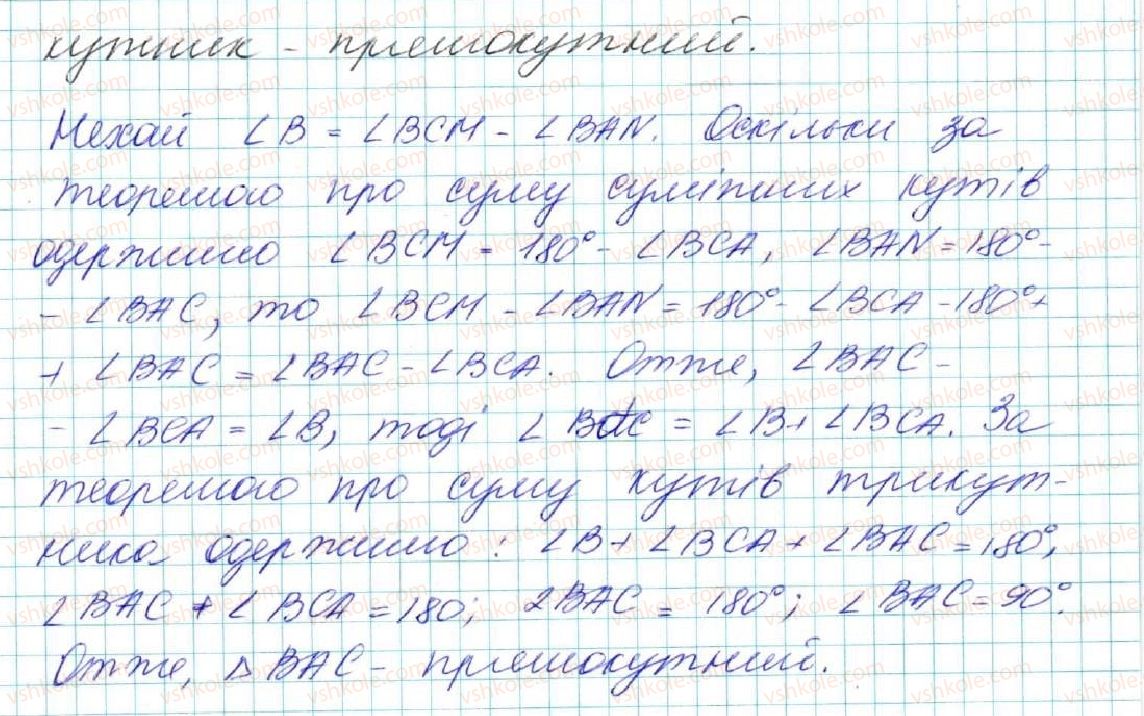 кутник - прямокутний.
Нехай ∠B = ∠BCM - ∠BAN. Оскільки за
теоремою про суму суміжних кутів
одержимо ∠BCM = 180° - ∠BCA, ∠BAN = 180° -
- ∠BAC, то ∠BCM - ∠BAN = 180° - ∠BCA - 180° +
+ ∠BAC = ∠BAC - ∠BCA. Отже, ∠BAC -
- ∠BCA = ∠B, тоді ∠BAC = ∠B + ∠BCA. За
теоремою про суму кутів трикут-
ника одержимо: ∠B + ∠BCA + ∠BAC = 180°,
∠BAC + ∠BCA = 180; 2BAC = 180°; ∠BAC = 90°.
Отже, △BAC - прямокутний.